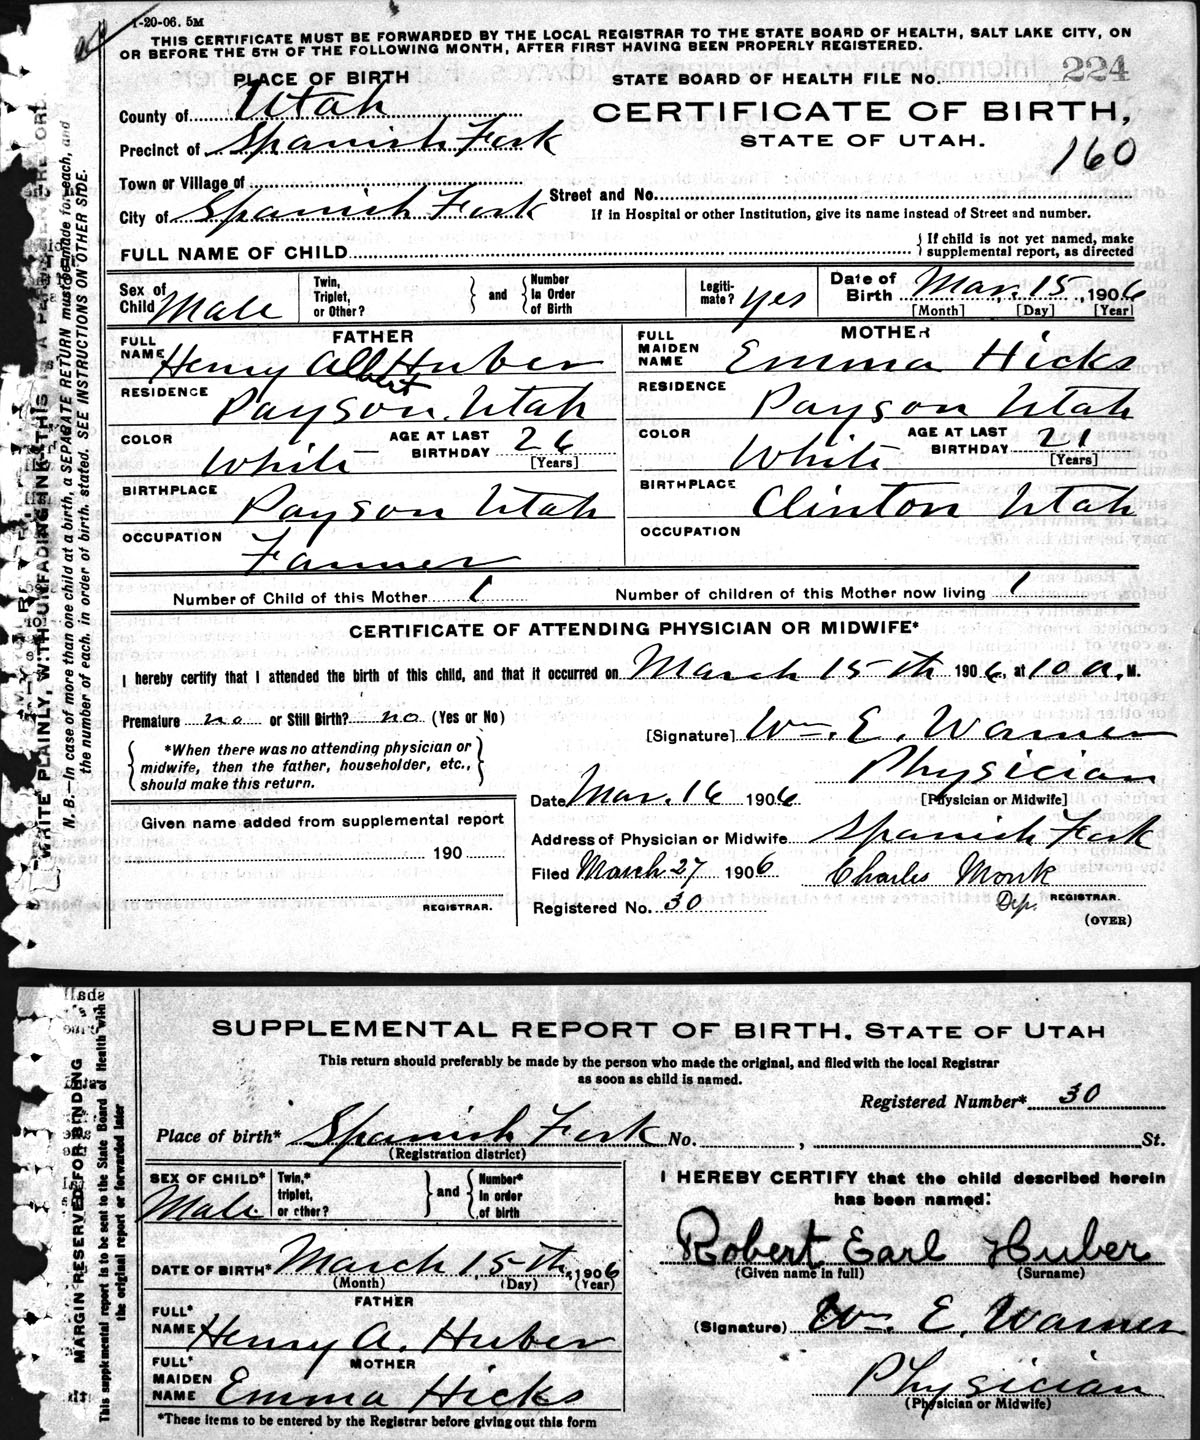 1-20-06. 5M
THIS CERTIFICATE MUST BE FORWARDED BY THE LOCAL REGISTRAR TO THE STATE BOARD OF HEALTH, SALT LAKE CITY, ON
OR BEFORE THE 5TH OF THE FOLLOWING MONTH, AFTER FIRST HAVING BEEN PROPERLY REGISTERED.
PLACE OF BIRTH
STATE BOARD OF HEALTH FILE NO. 224
County of Utah
CERTIFICATE OF BIRTH,
Precinct of Spanish Fork
STATE OF UTAH.
160
Town or Village of
Street and No.
City of Spanish Fork
If in Hospital or other Institution, give its name instead of Street and number.
FULL NAME OF CHILD
If child is not yet named, make
supplemental report, as directed
Sex of Child Male
Twin, Triplet, or Other? and Number In Order of Birth
Legiti-mate? yes
Date of Birth Mar. 15, 1906
[Month] [Day] [Year]
FATHER
FULL NAME Henry Albert Huber
MOTHER
FULL MAIDEN NAME Emma Hicks
RESIDENCE Payson Utah
RESIDENCE Payson Utah
COLOR White AGE AT LAST BIRTHDAY 26 [Years]
COLOR White AGE AT LAST BIRTHDAY 21 [Years]
BIRTHPLACE Payson Utah
BIRTHPLACE Clinton Utah
OCCUPATION Farmer
OCCUPATION
Number of Child of this Mother 1 Number of children of this Mother now living 1
CERTIFICATE OF ATTENDING PHYSICIAN OR MIDWIFE*
I hereby certify that I attended the birth of this child, and that it occurred on March 15th 1906, at 10 a. M.
Premature no or Still Birth? no (Yes or No)
[Signature] Wm. E. Warner
*When there was no attending physician or
midwife, then the father, householder, etc.,
should make this return.
Physician
[Physician or Midwife]
Date Mar. 16 1906
Given name added from supplemental report
190
REGISTRAR.
Address of Physician or Midwife Spanish Fork
Filed March 27 1906 Charles Monk
Registered No. 30 Dep. REGISTRAR.
(OVER)
WRITE PLAINLY, WITH UNFADING INK—THIS IS A
N. B.—In case of more than one child at a birth, a SEPARATE RETURN must be made for each, and
the number of each, in order of birth, stated. SEE INSTRUCTIONS ON OTHER SIDE.
SUPPLEMENTAL REPORT OF BIRTH, STATE OF UTAH
This return should preferably be made by the person who made the original, and filed with the local Registrar
as soon as child is named.
Registered Number* 30
Place of birth* Spanish Fork No. , St.
(Registration district)
SEX OF CHILD* Male
Twin,* triplet, or other? and Number* In order of birth
I HEREBY CERTIFY that the child described herein
has been named:
Robert Earl Huber
(Given name in full) (Surname)
DATE OF BIRTH* March 15th, 1906
(Month) (Day) (Year)
FATHER
FULL* NAME Henry A. Huber
(Signature) Wm. E. Warner
MOTHER
FULL* MAIDEN NAME Emma Hicks
Physician
(Physician or Midwife)
*These items to be entered by the Registrar before giving out this form
MARGIN RESERVED FOR BINDING
This supplemental report is to be sent to the State Board of Health with
the original report or forwarded later